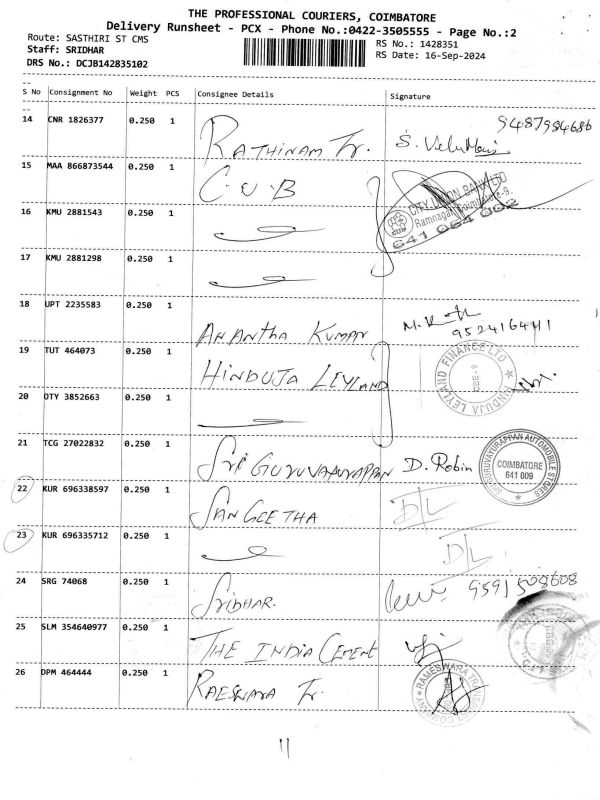 THE PROFESSIONAL COURIERS, COIMBATORE
Delivery Runsheet - PCX - Phone No.:0422-3505555 - Page No.:2
Route: SASTHIRI ST CMS
RS No.: 1428351
Staff: SRIDHAR
RS Date: 16-Sep-2024
DRS No.: DCJB142835102
S No Consignment No Weight PCS Consignee Details Signature
14 CNR 1826377 0.250 1 RATHINAM Tr. S. VeluMani 9487984686
15 MAA 866873544 0.250 1 C U B
CITY UNION BANK LTD
Ramnagar, Coimbatore-9.
641 054 002
16 KMU 2881543 0.250 1
17 KMU 2881298 0.250 1
18 UPT 2235583 0.250 1 ANANTHA KUMAR
19 TUT 464073 0.250 1 HINDUJA LEYLAND
HINDUJA LEYLAND FINANCE LTD
20 OTY 3852663 0.250 1
21 TCG 27022832 0.250 1 SRI GURUVAYURAPPAN D. Robin
SRI GURUVAYURAPPAN AUTOMOBILE STORES
COIMBATORE
641 009
22 KUR 696338597 0.250 1 SANGEETHA D/L
23 KUR 696335712 0.250 1 D/L
24 SRG 74068 0.250 1 SRIDHAR. 9591508608
25 SLM 354640977 0.250 1 THE INDIA CEMENT
26 DPM 464444 0.250 1 RAESWARA Tr.
RAMESWARA TRANSPORT COMPANY
11